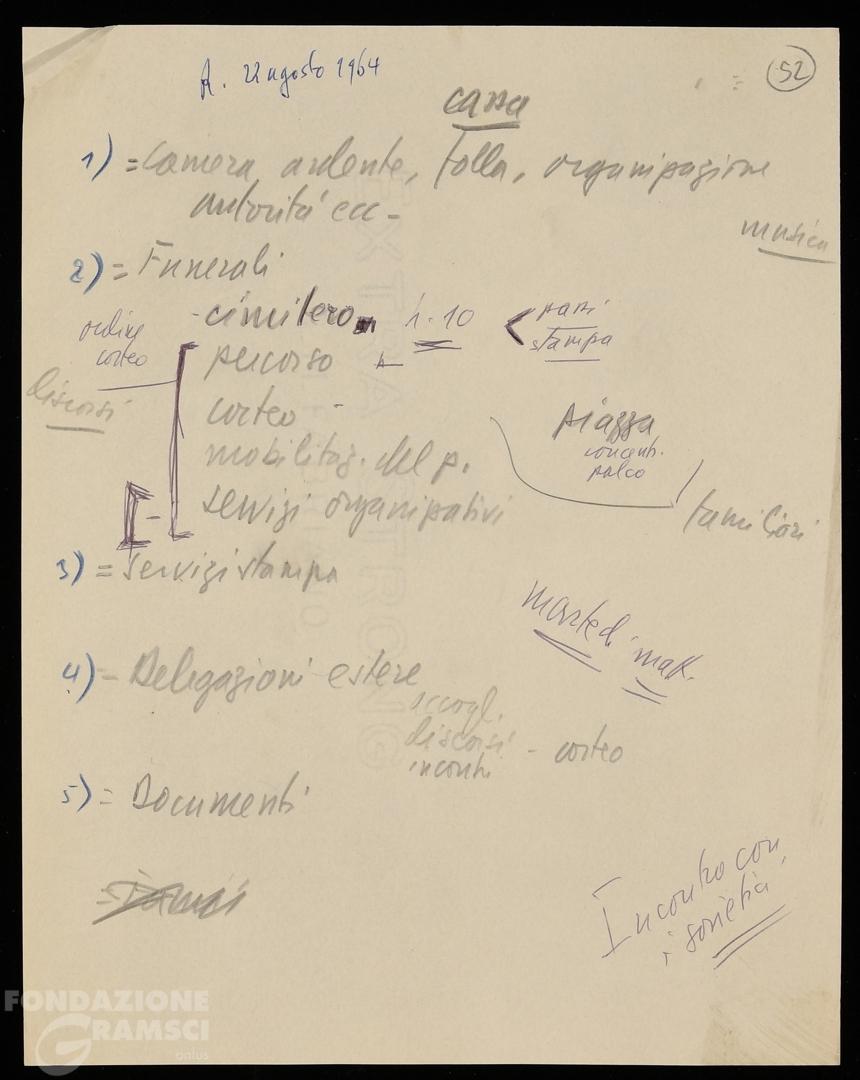 A. 22 agosto 1964
52
cassa
1) = Camera ardente, folla, organizzazione
autorità ecc -
musica
2) = Funerali
- cimitero h. 10
stampa
ordine
corteo
percorso
discorsi
corteo -
piazza
concentr.
palco
mobilitaz. del p.
servizi organizzativi
familiari
3) = Servizi stampa
martedì matt.
4) - Delegazioni estere
accogl.
discorsi - corteo
incontri
5) = Documenti
Incontro con
i sovietici
FONDAZIONE
GRAMSCI
onlus
EXTRA STRONG